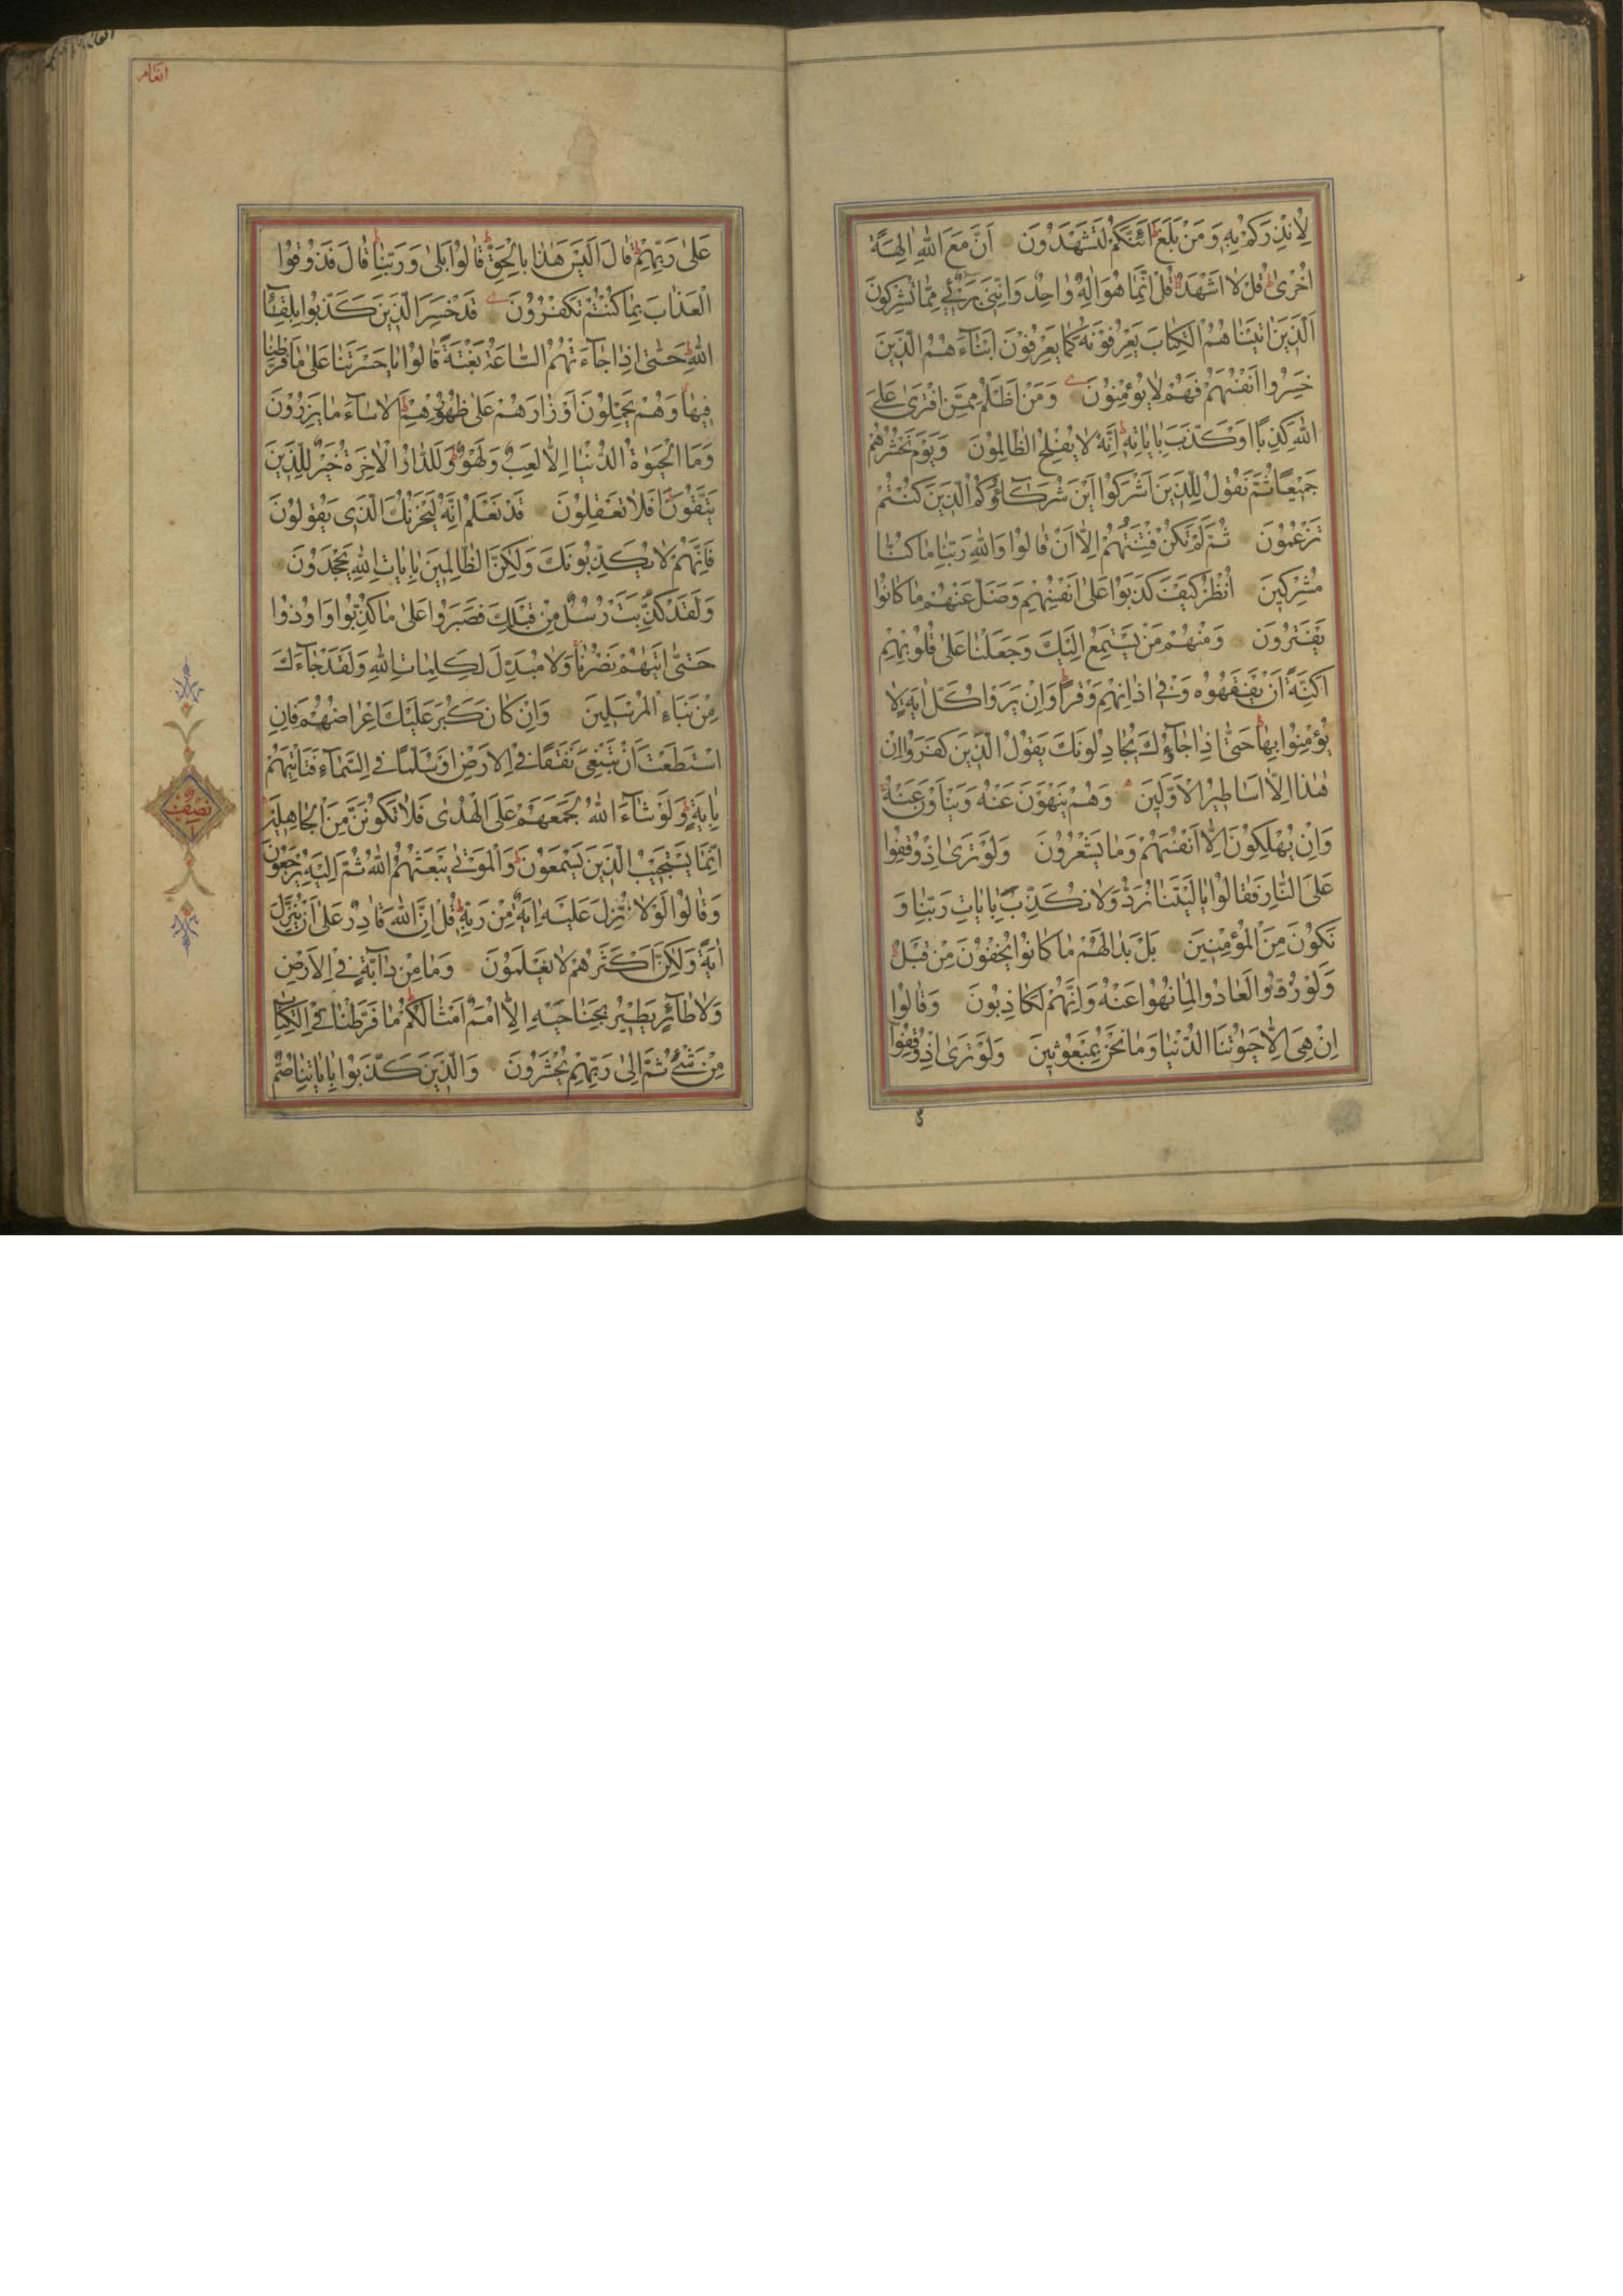 لِأُنْذِرَكُمْ بِهِ وَمَنْ بَلَغَ ط اَئِنَّكُمْ لَتَشْهَدُونَ اَنَّ مَعَ اللهِ اٰلِهَةً
اُخْرٰى ط قُلْ لَا اَشْهَدُ قُلْ اِنَّمَا هُوَ اِلٰهٌ وَاحِدٌ وَاِنَّنِى بَرِئٌ مِمَّا تُشْرِكُونَ
اَلَّذِينَ اٰتَيْنَاهُمُ الْكِتَابَ يَعْرِفُونَهُ كَمَا يَعْرِفُونَ اَبْنَاءَهُمُ الَّذِينَ
خَسِرُوا اَنْفُسَهُمْ فَهُمْ لَا يُؤْمِنُونَ وَمَنْ اَظْلَمُ مِمَّنِ افْتَرٰى عَلَى
اللهِ كَذِبًا اَوْ كَذَّبَ بِاٰيَاتِهِ ط اِنَّهُ لَا يُفْلِحُ الظَّالِمُونَ وَيَوْمَ نَحْشُرُهُمْ
جَمِيعًا ثُمَّ نَقُولُ لِلَّذِينَ اَشْرَكُوا اَيْنَ شُرَكَاؤُكُمُ الَّذِينَ كُنْتُمْ
تَزْعُمُونَ ثُمَّ لَمْ تَكُنْ فِتْنَتُهُمْ اِلَّا اَنْ قَالُوا وَاللهِ رَبِّنَا مَا كُنَّا
مُشْرِكِينَ اُنْظُرْ كَيْفَ كَذَبُوا عَلٰى اَنْفُسِهِمْ وَضَلَّ عَنْهُمْ مَا كَانُوا
يَفْتَرُونَ وَمِنْهُمْ مَنْ يَسْتَمِعُ اِلَيْكَ وَجَعَلْنَا عَلٰى قُلُوبِهِمْ
اَكِنَّةً اَنْ يَفْقَهُوهُ وَفِى اٰذَانِهِمْ وَقْرًا ط وَاِنْ يَرَوْا كُلَّ اٰيَةٍ لَا
يُؤْمِنُوا بِهَا ط حَتّٰى اِذَا جَاؤُكَ يُجَادِلُونَكَ يَقُولُ الَّذِينَ كَفَرُوا اِنْ
هٰذَا اِلَّا اَسَاطِيرُ الْاَوَّلِينَ وَهُمْ يَنْهَوْنَ عَنْهُ وَيَنْاَوْنَ عَنْهُ
وَاِنْ يُهْلِكُونَ اِلَّا اَنْفُسَهُمْ وَمَا يَشْعُرُونَ وَلَوْ تَرٰى اِذْ وُقِفُوا
عَلَى النَّارِ فَقَالُوا يَا لَيْتَنَا نُرَدُّ وَلَا نُكَذِّبَ بِاٰيَاتِ رَبِّنَا وَ
نَكُونَ مِنَ الْمُؤْمِنِينَ بَلْ بَدَا لَهُمْ مَا كَانُوا يُخْفُونَ مِنْ قَبْلُ
وَلَوْ رُدُّوا لَعَادُوا لِمَا نُهُوا عَنْهُ وَاِنَّهُمْ لَكَاذِبُونَ وَقَالُوا
اِنْ هِىَ اِلَّا حَيٰوتُنَا الدُّنْيَا وَمَا نَحْنُ بِمَبْعُوثِينَ وَلَوْ تَرٰى اِذْ وُقِفُوا
انعام
عَلٰى رَبِّهِمْ ط قَالَ اَلَيْسَ هٰذَا بِالْحَقِّ ط قَالُوا بَلٰى وَرَبِّنَا ط قَالَ فَذُوقُوا
الْعَذَابَ بِمَا كُنْتُمْ تَكْفُرُونَ قَدْ خَسِرَ الَّذِينَ كَذَّبُوا بِلِقَاءِ
اللهِ ط حَتّٰى اِذَا جَاءَتْهُمُ السَّاعَةُ بَغْتَةً قَالُوا يَا حَسْرَتَنَا عَلٰى مَا فَرَّطْنَا
فِيهَا وَهُمْ يَحْمِلُونَ اَوْزَارَهُمْ عَلٰى ظُهُورِهِمْ ط اَلَا سَاءَ مَا يَزِرُونَ
وَمَا الْحَيٰوةُ الدُّنْيَا اِلَّا لَعِبٌ وَلَهْوٌ ط وَلَلدَّارُ الْاٰخِرَةُ خَيْرٌ لِلَّذِينَ
يَتَّقُونَ ط اَفَلَا تَعْقِلُونَ قَدْ نَعْلَمُ اِنَّهُ لَيَحْزُنُكَ الَّذِى يَقُولُونَ
فَاِنَّهُمْ لَا يُكَذِّبُونَكَ وَلٰكِنَّ الظَّالِمِينَ بِاٰيَاتِ اللهِ يَجْحَدُونَ
وَلَقَدْ كُذِّبَتْ رُسُلٌ مِنْ قَبْلِكَ فَصَبَرُوا عَلٰى مَا كُذِّبُوا وَاُوذُوا
حَتّٰى اَتٰيهُمْ نَصْرُنَا وَلَا مُبَدِّلَ لِكَلِمَاتِ اللهِ وَلَقَدْ جَاءَكَ
مِنْ نَبَاءِ الْمُرْسَلِينَ وَاِنْ كَانَ كَبُرَ عَلَيْكَ اِعْرَاضُهُمْ فَاِنِ
اسْتَطَعْتَ اَنْ تَبْتَغِىَ نَفَقًا فِى الْاَرْضِ اَوْ سُلَّمًا فِى السَّمَاءِ فَتَاْتِيَهُمْ
بِاٰيَةٍ ط وَلَوْ شَاءَ اللهُ لَجَمَعَهُمْ عَلَى الْهُدٰى فَلَا تَكُونَنَّ مِنَ الْجَاهِلِينَ
نصف
اِنَّمَا يَسْتَجِيبُ الَّذِينَ يَسْمَعُونَ ط وَالْمَوْتٰى يَبْعَثُهُمُ اللهُ ثُمَّ اِلَيْهِ يُرْجَعُونَ
وَقَالُوا لَوْلَا نُزِّلَ عَلَيْهِ اٰيَةٌ مِنْ رَبِّهِ ط قُلْ اِنَّ اللهَ قَادِرٌ عَلٰى اَنْ يُنَزِّلَ
اٰيَةً وَلٰكِنَّ اَكْثَرَهُمْ لَا يَعْلَمُونَ وَمَا مِنْ دَابَّةٍ فِى الْاَرْضِ
وَلَا طَائِرٍ يَطِيرُ بِجَنَاحَيْهِ اِلَّا اُمَمٌ اَمْثَالُكُمْ ط مَا فَرَّطْنَا فِى الْكِتَابِ
مِنْ شَىْءٍ ثُمَّ اِلٰى رَبِّهِمْ يُحْشَرُونَ وَالَّذِينَ كَذَّبُوا بِاٰيَاتِنَا صُمٌّ